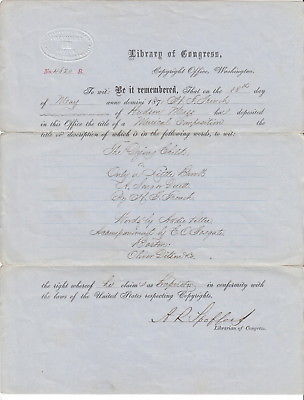 Library of Congress,
Copyright Office, Washington.
No. B.
To wit: Be it remembered, That on the day
of May anno domini 187 , H. S. French
of Hudson Mass has deposited
in this Office the title of a Musical Composition the
title or description of which is in the following words, to wit:
The Dying Child.
Only a Little Brook
A Song & Duett
By H. S. French
Words by
Accompaniment by E. C.
Boston.
Oliver Ditson & Co.
the right whereof he claims as Proprietor in conformity with
the laws of the United States respecting Copyrights.
A. R. Spofford
Librarian of Congress.